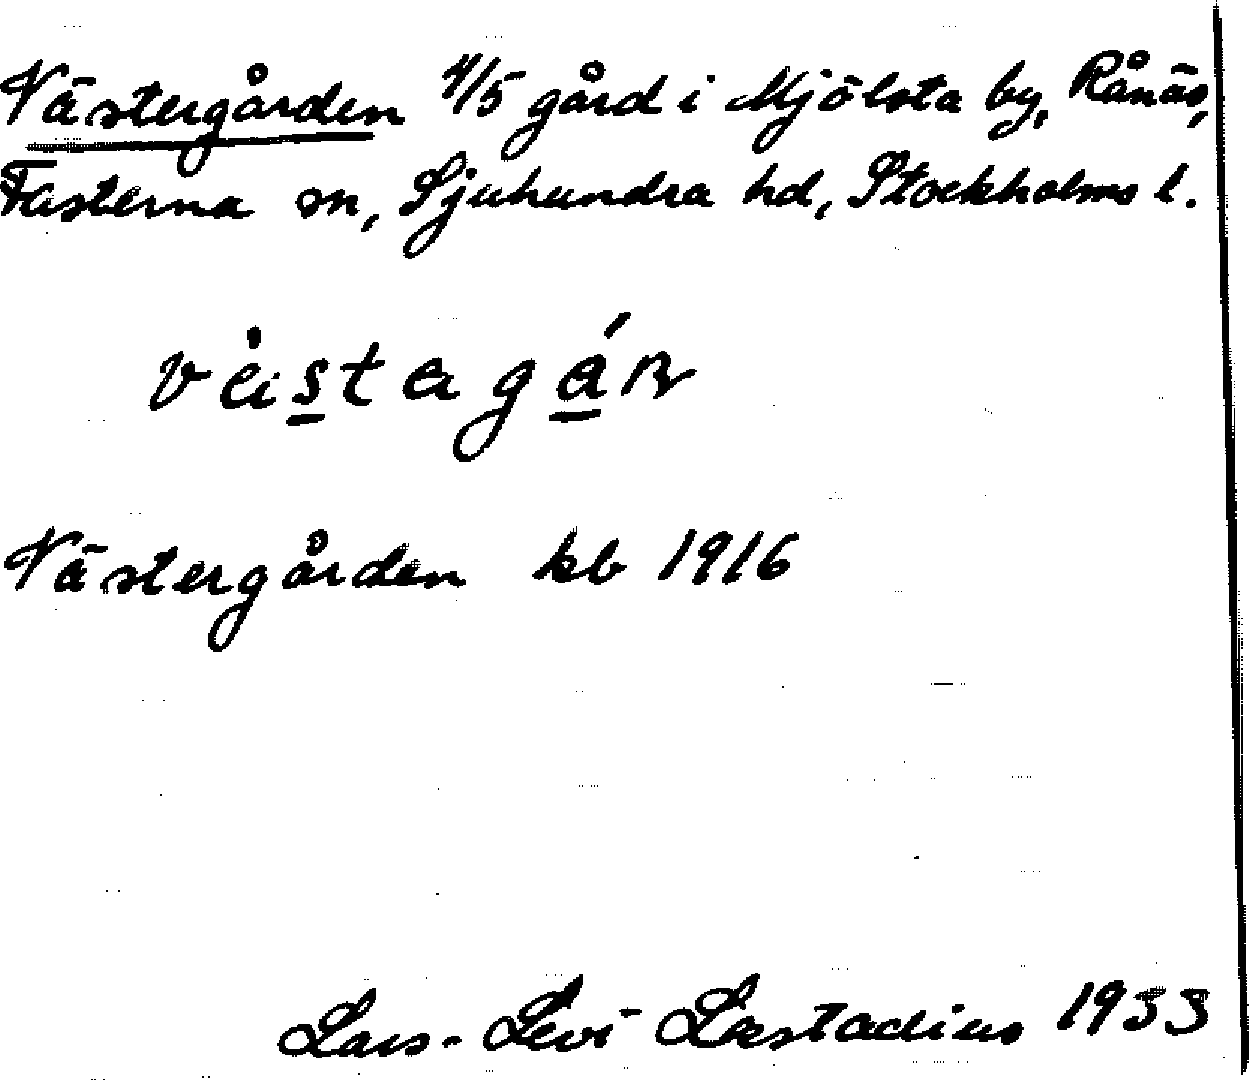 Västergården 4/5 gård i Mjölsta by, Rånäs,
Fasterna sn, Sjuhundra hd, Stockholms l.
västagán
Västergården kb 1916
Lars-Levi Læstadius 1933